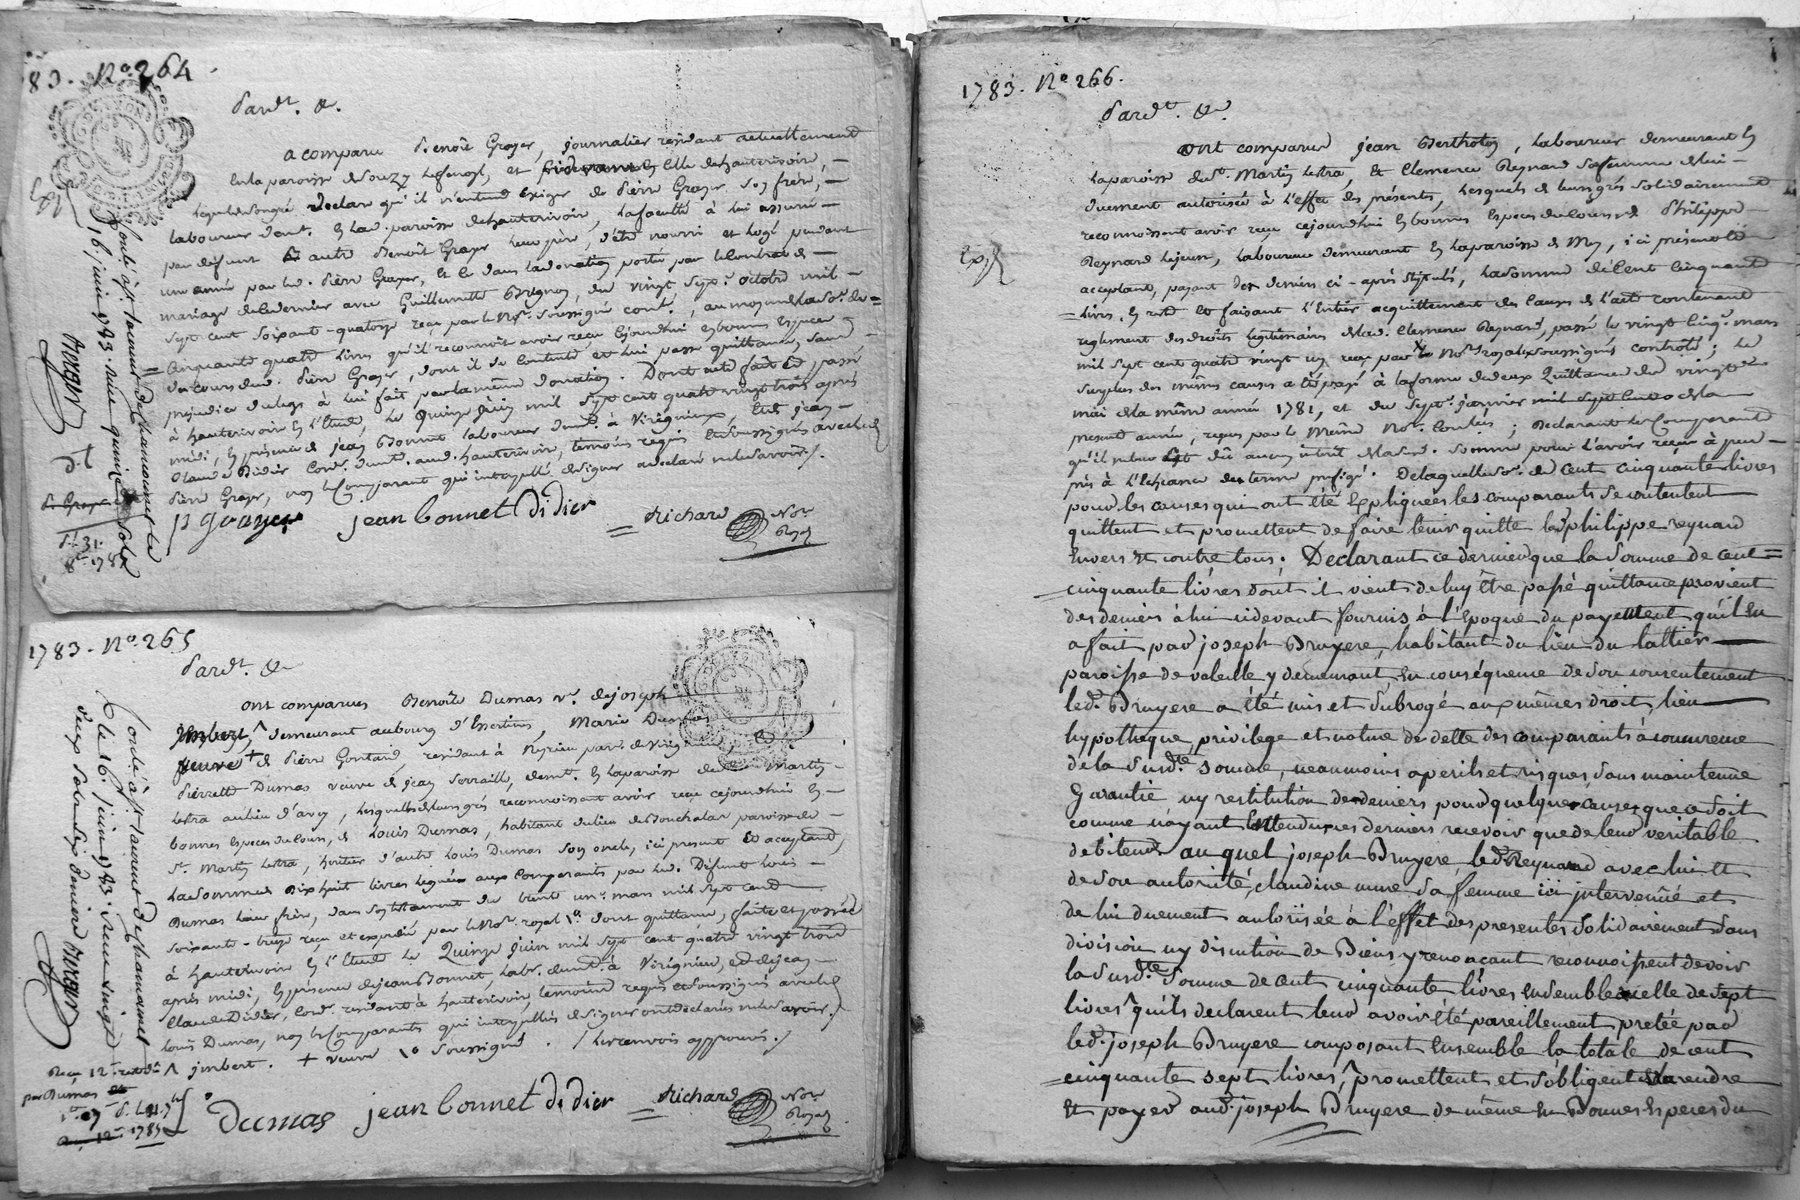 83. N° 264.
Pardt. &.
a comparu Benoit Grayer, journalier residant actuellement
en la paroisse de Souzy et
lequel de son gré declare qu'il n'entend exiger de Pierre Grayer son frère,
laboureur demt. en lad. paroisse de hauterivoir, la faculté à lui assurée
par défunt autre Benoit Grayer leur père, d'être nourri et logé pendant
une année par led. Pierre Grayer, et ce dans la donation portée par le contrat de
mariage de ce dernier avec Guillemette Brignon, du vingt sept octobre mil
sept cent soixante-quatorze reçu par le Nre. soussigné conté., au moyen de la so. de =
= cinquante quatre livres qu'il reconnoit avoir reçu cejourdhui en bonnes especes
du cours dud. Pierre Grayer, dont il se contente et lui passe quittance, sans
prejudice du legs à lui fait par la même donation. Dont acte fait et passé
à hauterivoir en l'Etude, le Quinze juin mil sept cent quatre vingt trois après
midi, en présence de jean Bonnet laboureur demt. à Virignieux, et de jean
Claude Didier Cordr. demt. aud. hauterivoir, temoins requis et soussignés avec led.
Pierre Grayer, non le Comparant qui interpellé de signer a declaré ne le savoir./.
p grayer jean bonnet didier = Richard Nore. Royal
Exp.
Controlé à st. laurent de chamousset le
16. juin 1783. reçu quinze sols
1783. N° 265
Pardt. &
ont comparues Benoîte Dumas ve. de joseph
jmbert ^, demeurant au bourg d'Essertines, Marie Dumas
veuve + de Pierre Gontard, residant à Reyrieu parse. de Virignieu,
Pierrette Dumas veuve de jean demt. en la paroisse de st. Martin
lestra au lieu d'avey, lesquelles de leurs grés reconnoissent avoir reçu cejourdhui en
bonnes especes du cours, de Louis Dumas, habitant du lieu de Bouchalas paroisse de
st. Martin lestra, heritier d'autre Louis Dumas son oncle, ici present et acceptant,
la somme de Dix huit livres leguée aux comparants par led. Défunt Louis
Dumas leur frère, dans son testament du trente un. mars mil sept cent
soixante-treize reçu et expedié par le Nre. royal \o dont quittance, faite et passée
à hauterivoir en l'Etude le Quinze juin mil sept cent quatre vingt trois
après midi, en présence de jean Bonnet, Labr. demt. à Virignieu, et de jean
Claude Didier, cordr. residant à hauterivoir, temoins requis et soussignés avec led.
Louis Dumas, non les Comparants qui interpellés de signer ont declarés ne le savoir./
^ jmbert. + veuve \o soussigné. / les renvois approuvés./
Dumas jean bonnet didier = Richard Nore. Royal
Controlé à st. laurent de chamousset
le 16. juin 1783. reçu vingt
deux sols six deniers
1783. N° 266.
Pardt. &.
ont comparus jean Berthoton, Laboureur demeurant en
la paroisse de st. Martin lestra, et Clemence Reynard sa femme de lui
duement autorisée à l'effet des présentes, lesquels de leurs grés solidairement
reconnoissent avoir reçu cejourdhui en bonnes especes du cours de Philippe
Reynard le jeune, laboureur demeurant en la paroisse de Mey, ici présent et
acceptant, payant des deniers ci-après stipulés, la somme de Cent cinquante
= livres en reste et faisant l'entier acquittement des causes de l'acte contenant
reglement des droits legitimaires de lad. Clemence Reynard, passé le vingt cinq. mars
mil sept cent quatre vingt un, reçu par le Nre. royal soussigné controlé; le
surplus des mêmes causes a été payé à la forme de deux Quittances des vingt
mai de la même année 1781, et du sept. janvier de la
presente année, reçues par le même Nre. Contées; Declarant les Comparants
qu'il ne leur est dû aucun interet de lad. somme pour l'avoir reçue à peu
près à l'échéance du terme prefigé. De laquelle so. de Cent cinquante livres
pour les causes qui ont été Expliquées les comparants se contentent
quittent et promettent de faire tenir quitte led. philippe reynard
Envers et contre tous; Declarant ce dernier que la somme de cent =
= cinquante livres dont il vient de luy être passé quittance provient
des deniers à lui cidevant fournis à l'Epoque du payement qu'il en
a fait par joseph Bruyere, habitant du lieu du lattier
paroisse de valeille y demeurant, En conséquence de son consentement
led. Bruyere a été mis et subrogé aux mêmes droit, lieu
hypotheque, privilege et nature de dette des comparants à concurrence
de la susdte. somme, neanmoins a perils et risques, sans maintenue
Garantie ny restitution de deniers pour quelque cause que ce soit
comme n'ayant Entendu ces derniers recevoir que de leur veritable
debiteur. auquel joseph Bruyere, led. Reynard avec lui et
de son autorité, claudine mure sa femme ici intervenue et
de lui duement autorisée à l'effet des presentes solidairement sans
division ny discution de Biens y renonçant reconnoissent devoir
la susdte. somme de cent cinquante livres ensemble celle de sept
livres qu'ils declarent leur avoir été pareillement pretée par
led. joseph Bruyere composant ensemble la totale de cent
= cinquante sept livres, promettent et s'obligent rendre
et payer aud. joseph Bruyere de même en Bonnes Especes du